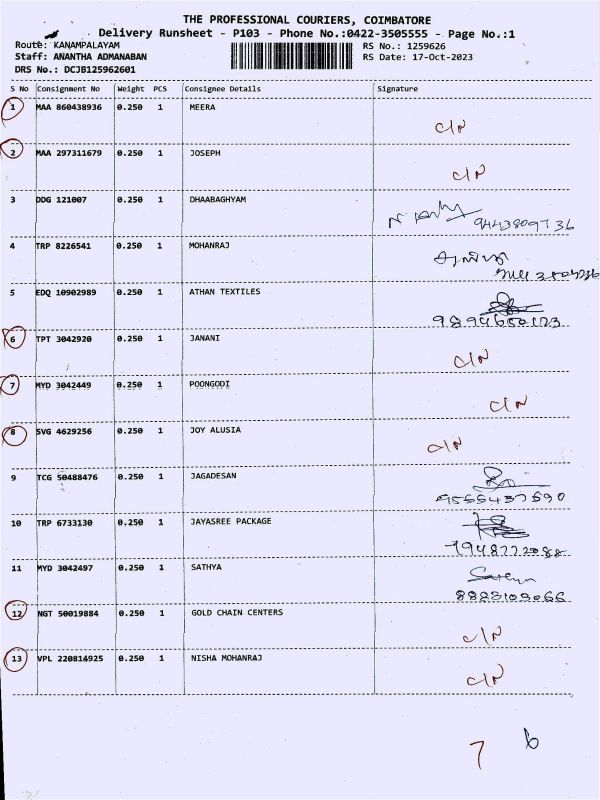 THE PROFESSIONAL COURIERS, COIMBATORE
Delivery Runsheet - P103 - Phone No.:0422-3505555 - Page No.:1
Route: KANAMPALAYAM RS No.: 1259626
Staff: ANANTHA ADMANABAN RS Date: 17-Oct-2023
DRS No.: DCJB125962601
S No Consignment No Weight PCS Consignee Details Signature
1 MAA 860438936 0.250 1 MEERA
C/N
2 MAA 297311679 0.250 1 JOSEPH
C/N
3 DDG 121007 0.250 1 DHAABAGHYAM
9443809736
4 TRP 8226541 0.250 1 MOHANRAJ
5 EDQ 10902989 0.250 1 ATHAN TEXTILES
9894650123
6 TPT 3042920 0.250 1 JANANI
C/N
7 MYD 3042449 0.250 1 POONGODI
C/N
8 SVG 4629256 0.250 1 JOY ALUSIA
C/N
9 TCG 50488476 0.250 1 JAGADESAN
9565437590
10 TRP 6733130 0.250 1 JAYASREE PACKAGE
7948772088
11 MYD 3042497 0.250 1 SATHYA
8883109066
12 NGT 50019884 0.250 1 GOLD CHAIN CENTERS
C/N
13 VPL 220814925 0.250 1 NISHA MOHANRAJ
C/N
7 6